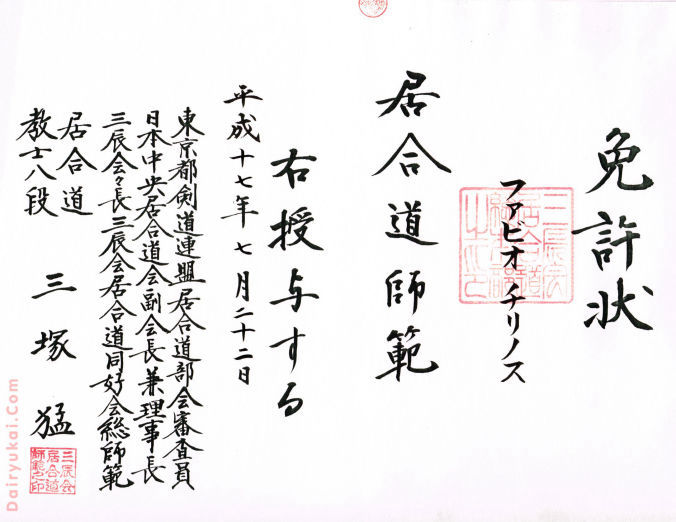 免許状
ファビオ チリノス
居合道師範
右授与する
平成十七年七月二十二日
東京都剣道連盟居合道部会審査員
日本中央居合道会副会長兼理事長
三辰会々長三辰会居合道同好会総師範
居合道
教士八段
三塚猛
三辰会
居合道
師範之印
Dairyukai.Com